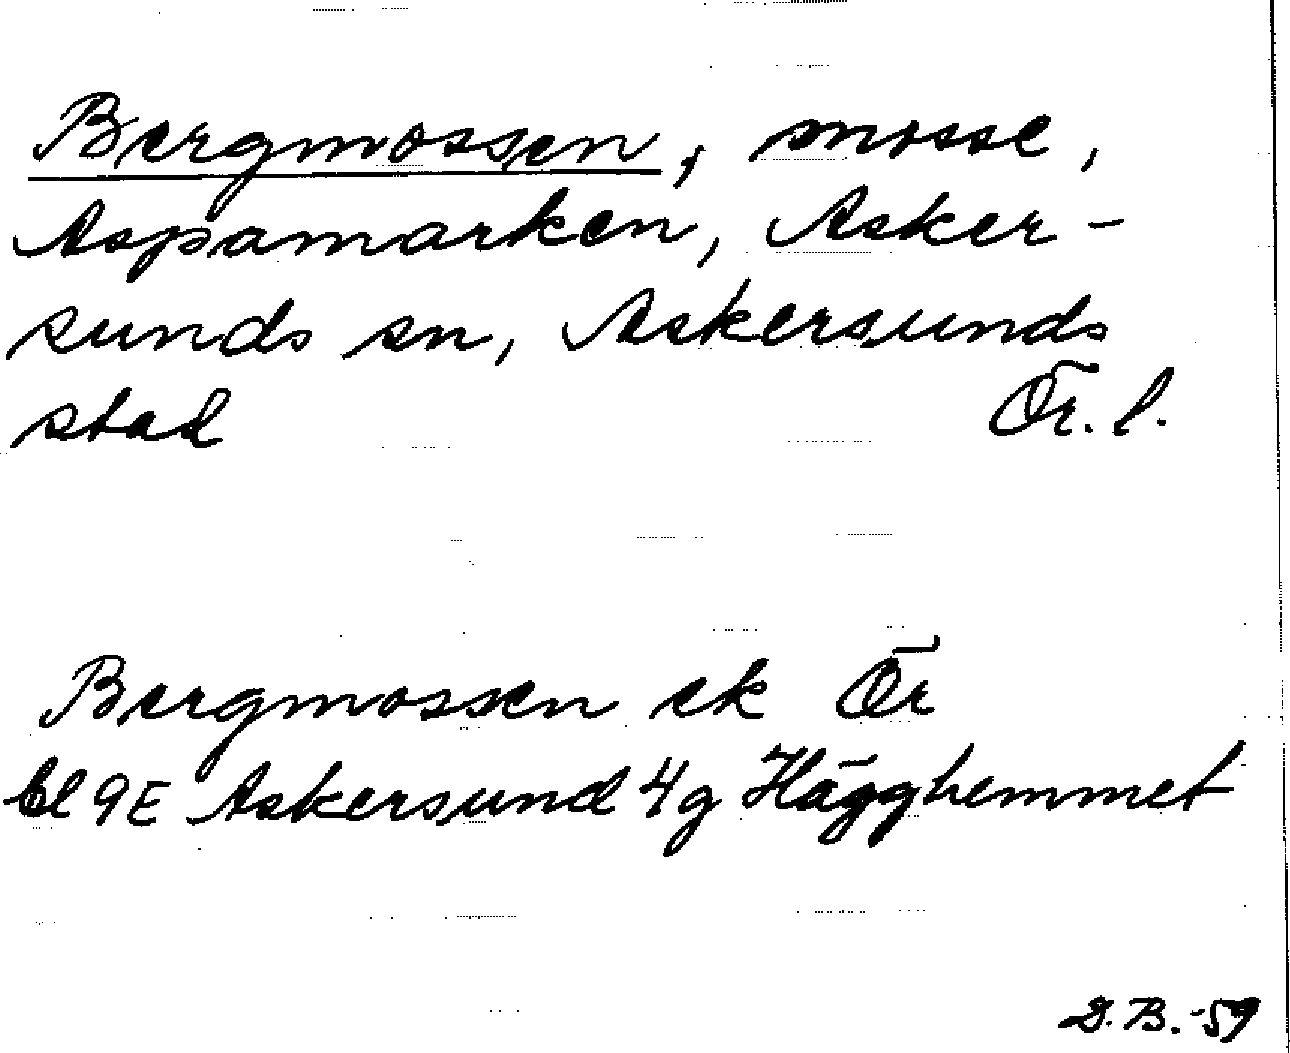 Bergmossen, mosse,
Aspamarken, Asker-
sunds sn, Askersunds
stad Ör. l.
Bergmossen ek Ör
bl 9E Askersund 4g Hägghemmet
G.B.-59